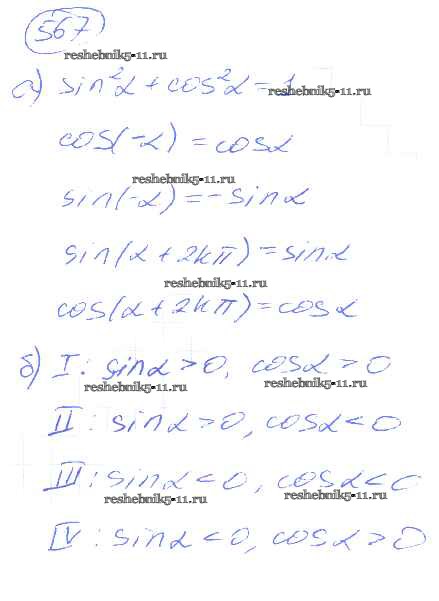 567
reshebnik5-11.ru
а) sin²α + cos²α = 1
reshebnik5-11.ru
cos(-α) = cosα
reshebnik5-11.ru
sin(-α) = -sinα
sin(α + 2kπ) = sinα
reshebnik5-11.ru
cos(α + 2kπ) = cosα
б) I: sinα > 0, cosα > 0
reshebnik5-11.ru reshebnik5-11.ru
II: sinα > 0, cosα < 0
III: sinα < 0, cosα < 0
reshebnik5-11.ru reshebnik5-11.ru
IV: sinα < 0, cosα > 0